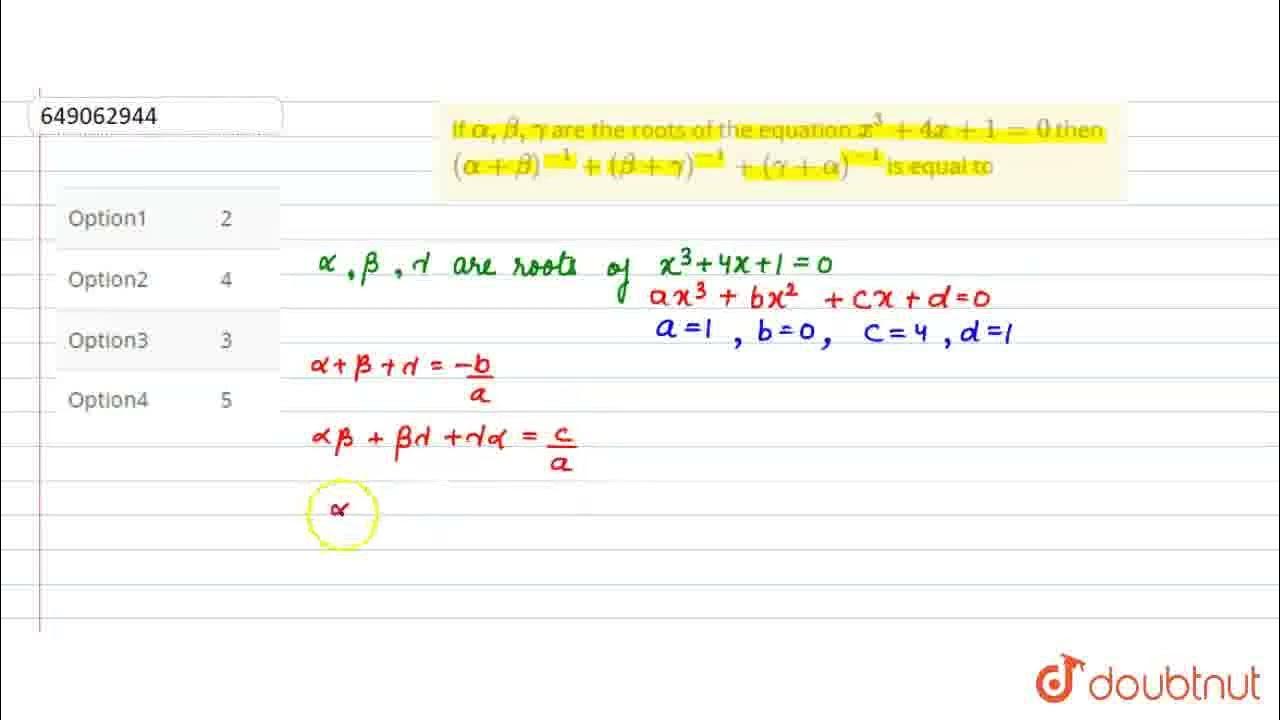 649062944
If α, β, γ are the roots of the equation x³ + 4x + 1 = 0 then
(α + β)⁻¹ + (β + γ)⁻¹ + (γ + α)⁻¹ is equal to
Option1 2
Option2 4
Option3 3
Option4 5
α, β, γ are roots of x³+4x+1=0
ax³ + bx² + cx + d=0
a=1, b=0, c=4, d=1
α+β+γ = -b/a
αβ + βγ + γα = c/a
α
doubtnut